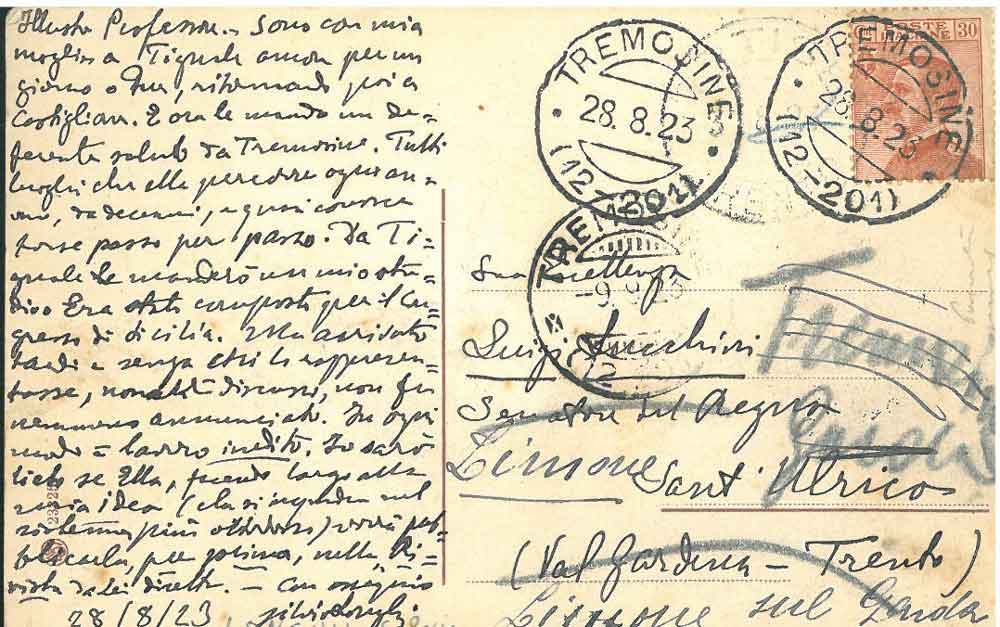 Illustre Professore. Sono con mia
moglie a Tignale ancora per un
giorno o due, ritornando poi a
Castiglion. E ora le mando un de-
ferente saluto da Tremosine. Tutti
luoghi che ella percorre ogni an-
no, da decenni, e quasi conosce
forse passo per passo. Da Ti-
gnale le manderò un mio stu-
dio. Era stato composto per il Con-
gresso di Sicilia. Ma arrivato
tardi e senza chi lo rappresen-
tasse, non discusso, non fu
nemmeno annunciato. In ogni
modo è lavoro inedito. Io sarò
lieto se Ella, facendo largo alla
mia idea (che
sistema più ) vorrà pub-
blicarla, per prima, nella Ri-
vista da lei diretta. — Con ossequio
28/8/23
TREMOSINE
28.8.23
(12-201)
TREMOSINE
28.8.23
(12-201)
POSTE ITALIANE 30
TREMOSINE
-9.23
Sua Eccellenza
Luigi
Senatore del Regno
Limone
Sant' Ulrico
(Val Gardena — Trento)
Limone sul Garda
2332